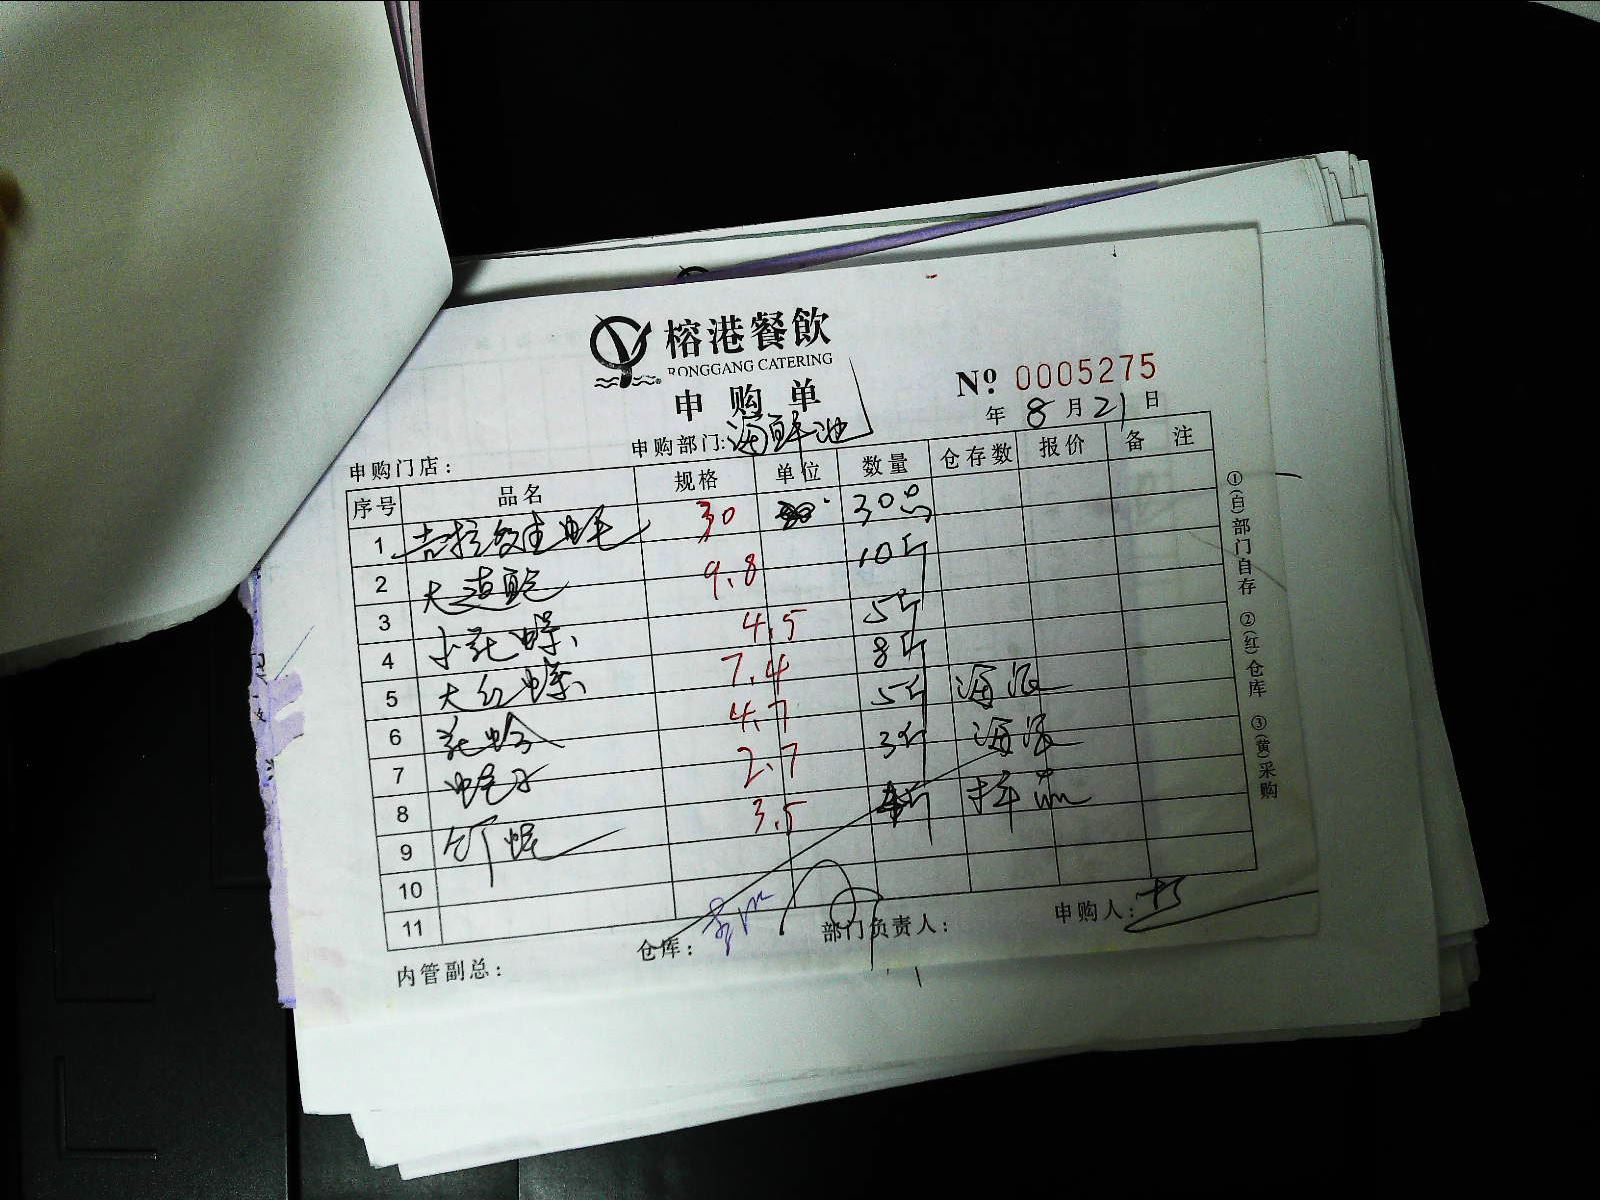 榕港餐飲
RONGGANG CATERING
申购单
№ 0005275
年 8 月 21 日
申购门店： 申购部门:海鲜池
序号 品名 规格 单位 数量 仓存数 报价 备注
1 吉拉多生蚝 30 30只
2 大连鲍 9.8 10斤
3 小花螺 4.5 5斤
4 大红螺 7.4 8斤
5 花蛤 4.7 5斤
6 2.7 3斤
7 竹蛏 3.5
8
9
10
11
内管副总： 仓库： 部门负责人： 申购人：
①(白)部门自存 ②(红)仓库 ③(黄)采购